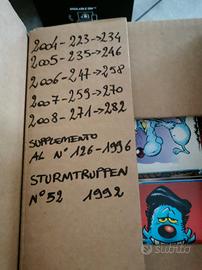 2004-223→234
2005-235→246
2006-247→258
2007-259→270
2008-271→282
SUPPLEMENTO
AL N° 126-1996
STURMTRUPPEN
N° 52 1992
subito